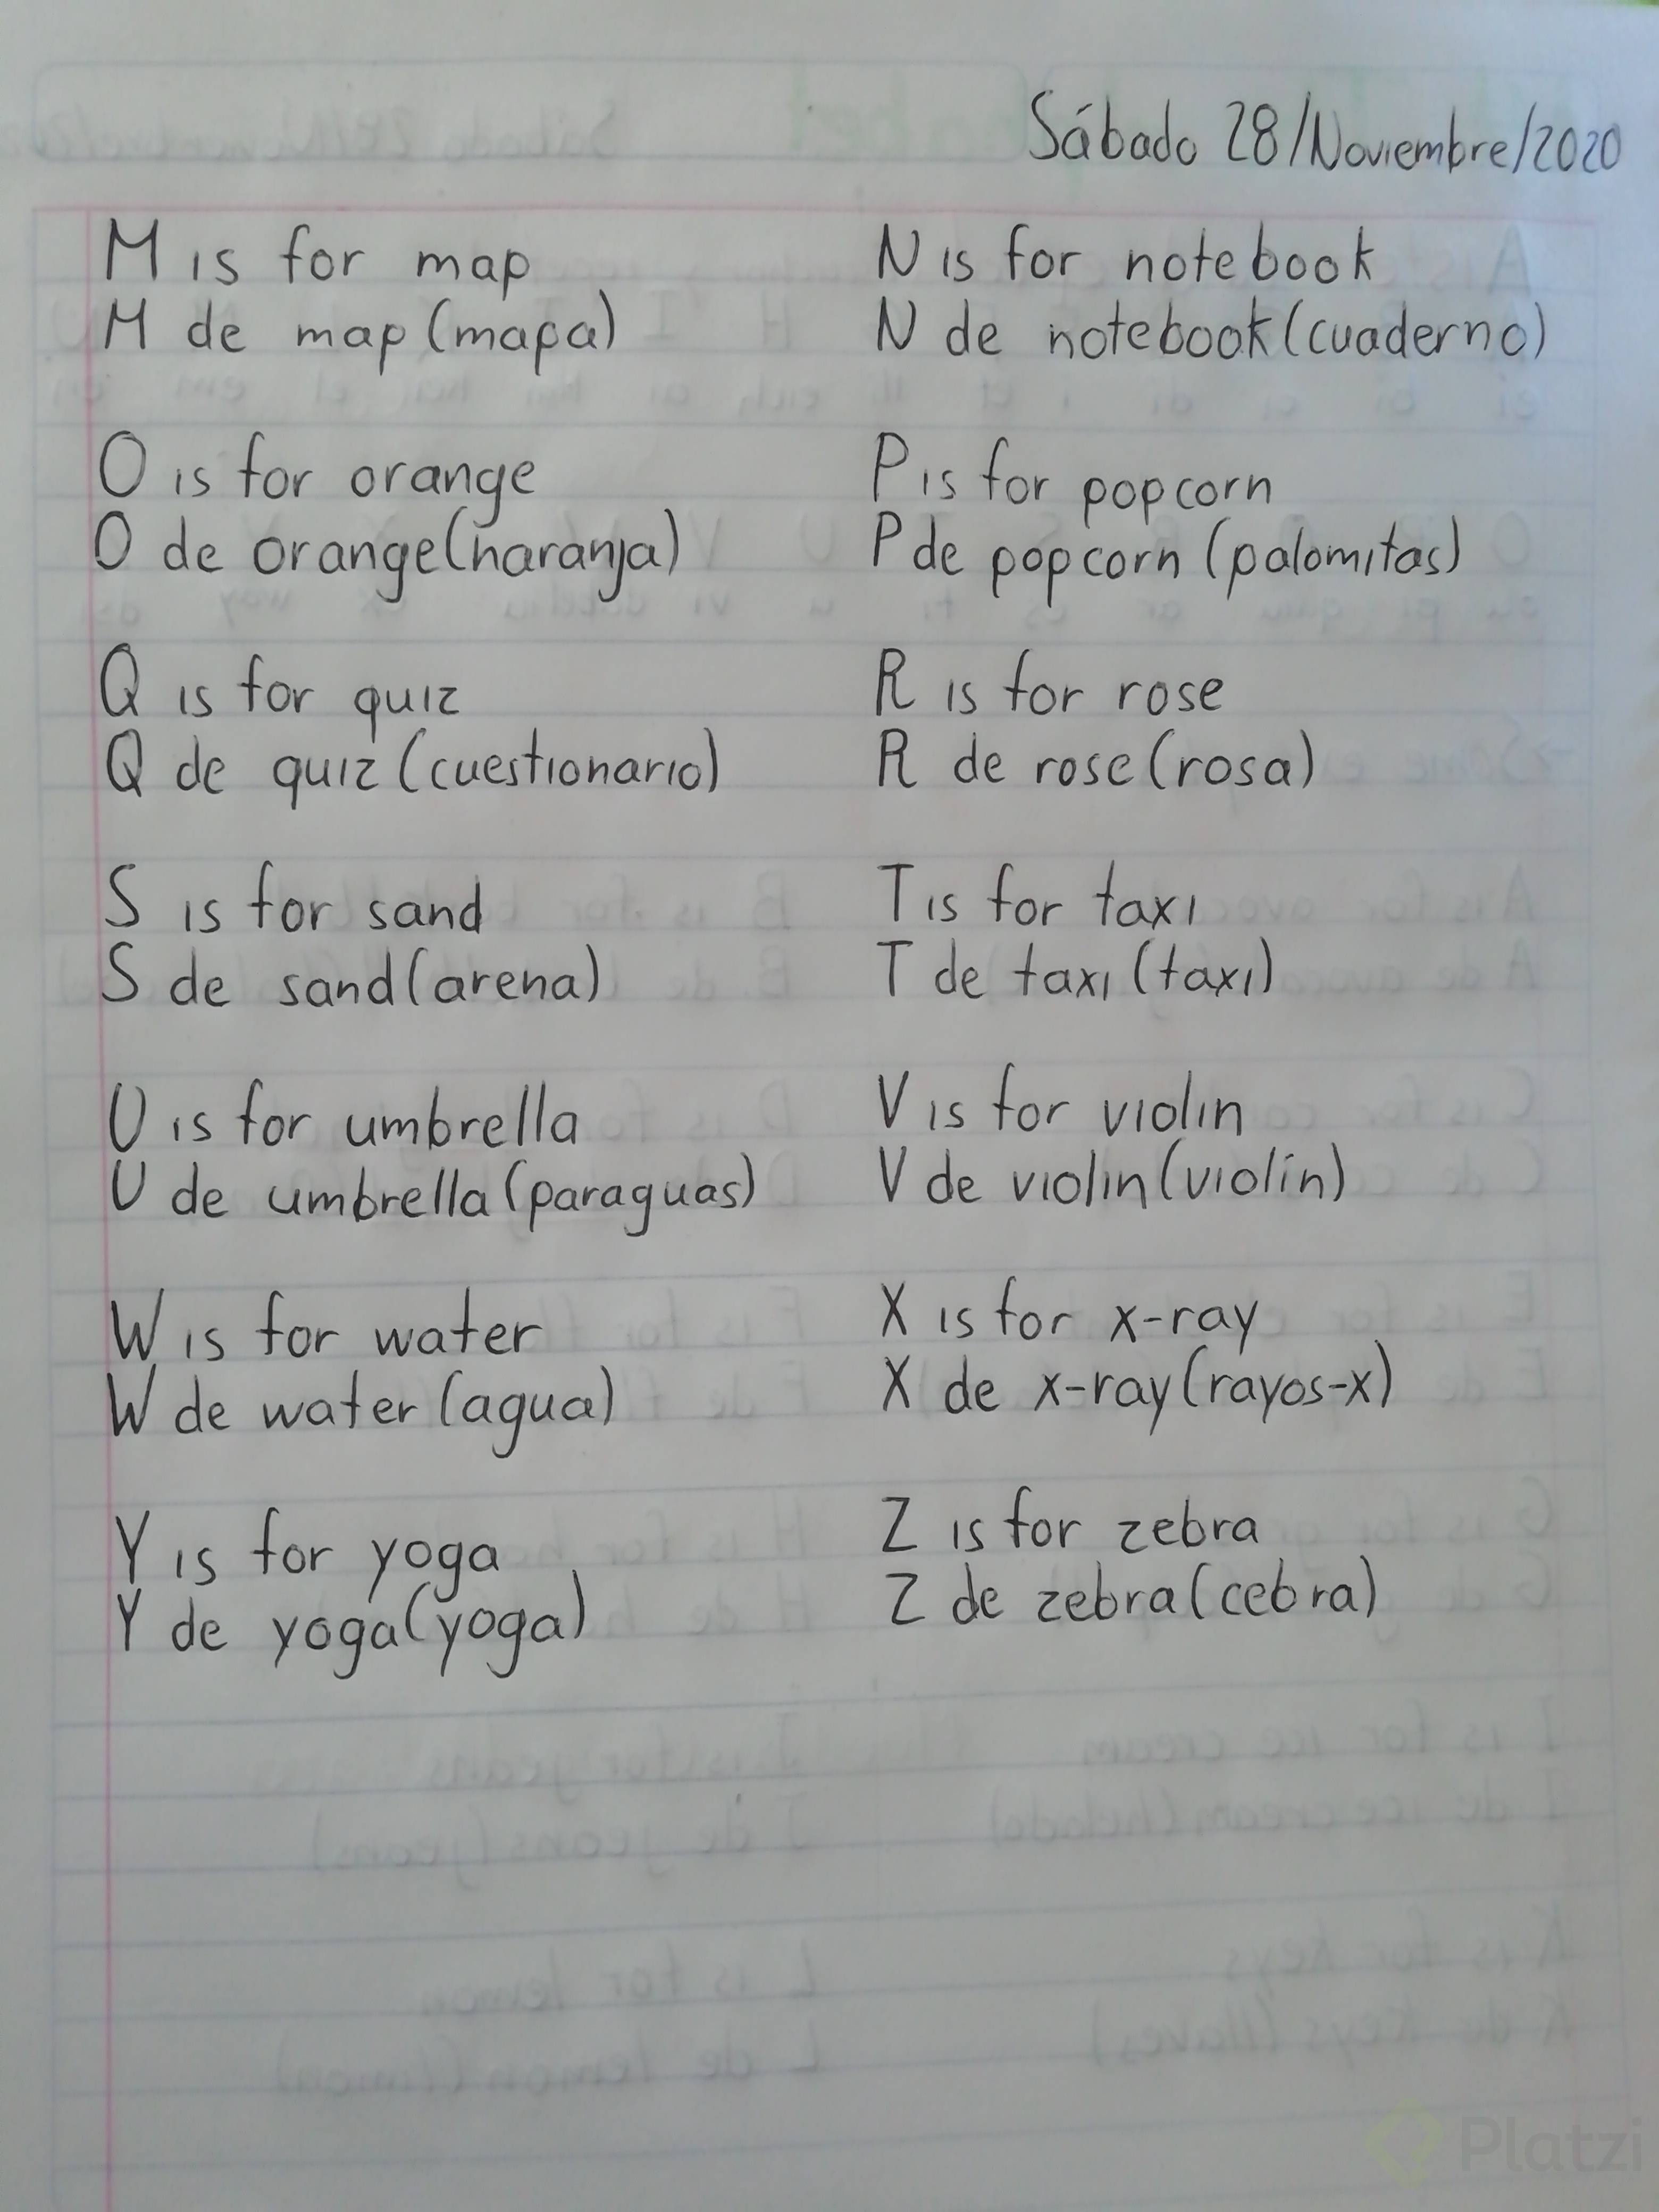 Sábado 28/Noviembre/2020
M is for map
M de map (mapa)
N is for notebook
N de notebook (cuaderno)
O is for orange
O de orange (naranja)
P is for popcorn
P de popcorn (palomitas)
Q is for quiz
Q de quiz (cuestionario)
R is for rose
R de rose (rosa)
S is for sand
S de sand (arena)
T is for taxi
T de taxi (taxi)
U is for umbrella
U de umbrella (paraguas)
V is for violin
V de violin (violín)
W is for water
W de water (agua)
X is for x-ray
X de x-ray (rayos-x)
Y is for yoga
Y de yoga (yoga)
Z is for zebra
Z de zebra (cebra)
Platzi